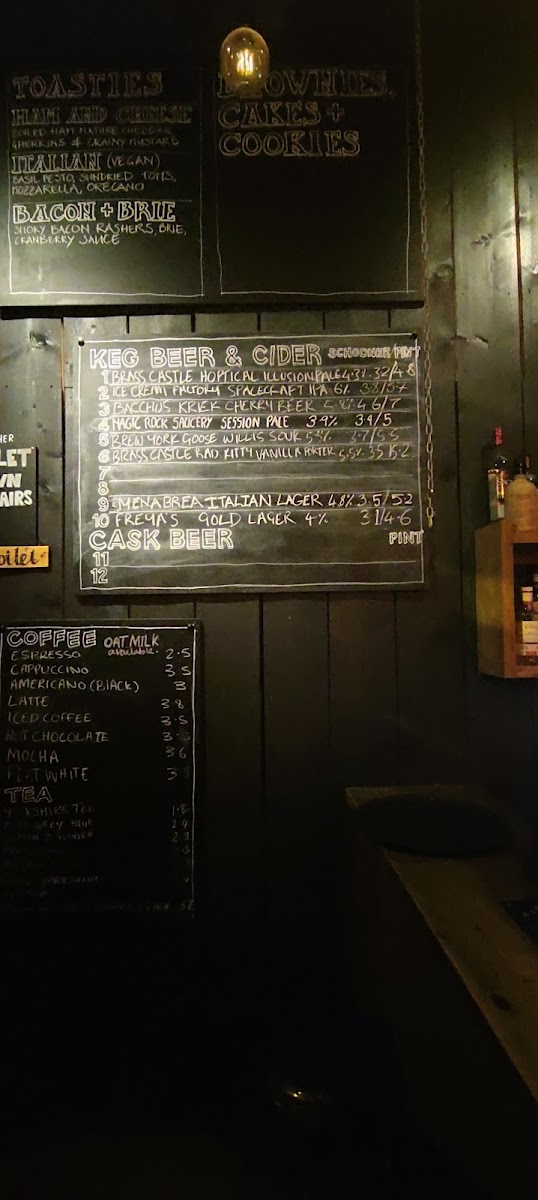 TOASTIES
HAM AND CHEESE
BOILED HAM, MATURE CHEDDAR,
GHERKINS & GRAINY MUSTARD
ITALIAN (VEGAN)
BASIL PESTO, SUNDRIED TOMS,
MOZZARELLA, OREGANO
BACON + BRIE
SMOKY BACON RASHERS, BRIE,
CRANBERRY SAUCE
BROWNIES,
CAKES +
COOKIES
KEG BEER & CIDER SCHOONER/PINT
1 BRASS CASTLE HOPTICAL ILLUSION PALE 4.3% 3.2/4.8
2 ICE CREAM FACTORY SPACECRAFT IPA 6% 3.8/5.7
3 BACCHUS KRIEK CHERRY BEER 5.8% 4.6/7
4 MAGIC ROCK SAUCERY SESSION PALE 3.9% 3.4/5
5 BREW YORK GOOSE WILLIS SOUR 3.7/5.5
6 BRASS CASTLE BAD KITTY VANILLA PORTER 5.5% 3.5/5.2
7
8
9 MENABREA ITALIAN LAGER 4.8% 3.5/5.2
10 FREYA'S GOLD LAGER 4% 3.1/4.6
CASK BEER PINT
11
12
HER
LET
WN
AIRS
oilet
COFFEE OAT MILK
available.
ESPRESSO 2.5
CAPPUCCINO 3.5
AMERICANO (BLACK) 3
LATTE 3.8
ICED COFFEE 3.5
HOT CHOCOLATE
MOCHA 3.6
FLAT WHITE
TEA
YORKSHIRE TEA 1.8
EARL GREY BLUE 2.4